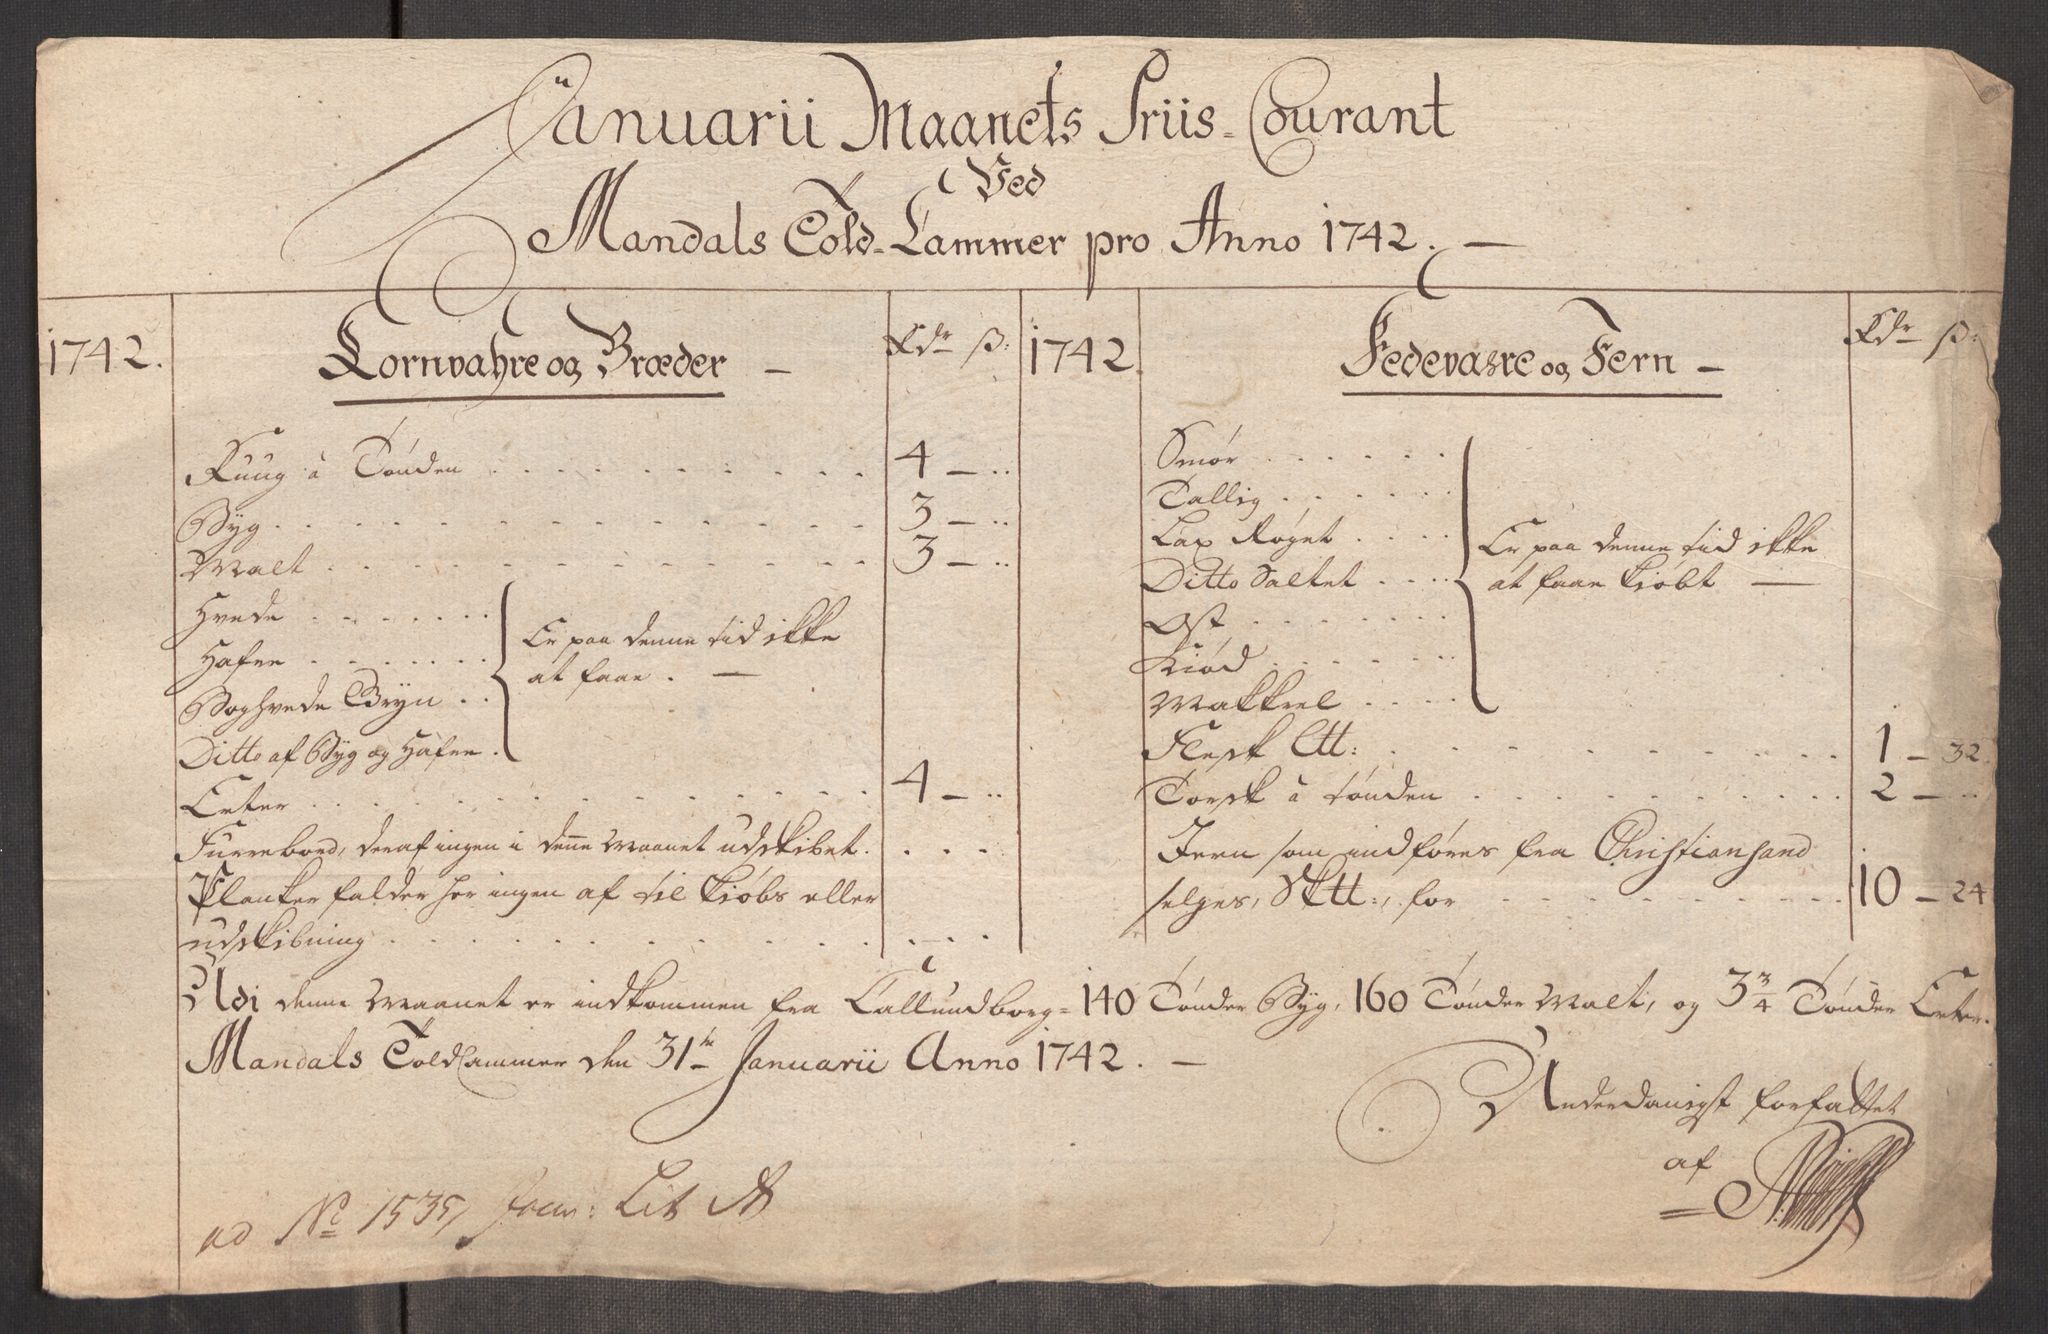 Januarii Maanets Priis-Courant
Ved
Mandals Told-Cammer pro Anno 1742. —
1742.
Cornvahre og Bræder —
Rdr ß:
Ruug â Tønden . . . 4 — ..
Byg . . . 3 — ..
Malt . . . 3 — ..
Hvede . . .
Hafre . . .
Boghvede Gryn . .
Ditto af Byg og Hafre .
Er paa denne tid ikke
at faae . —
Erter . . . 4 — ..
Furrebord, deraf ingen i denne Maanet udskibet. . . .
Planker falder her ingen af til Kiøbs eller
udskibning . . .
1742.
Fedevahre og Jern —
Rdr ß:
Smør . . .
Tallig . . .
Lax Røget . . .
Ditto Saltet . . .
Ost . . .
Kiød . . .
Makkrel . . .
Er paa denne tid ikke
at faae Kiøbt —
Flesk Ltt: . . . 1 — 32.
Torsk â tønden . . . 2 — ..
Jern som indføres fra Christiansand
selges, Sktt:, for . . . 10 — 24
Udi denne Maanet er indkommen fra Callundborg = 140 Tønder Byg, 160 Tønder Malt, og 3 3/4 Tønder Erter.
Mandals ToldCammer den 31te Januarii Anno 1742. —
Underdanigst forfattet
af
ad No 1535, Lit A